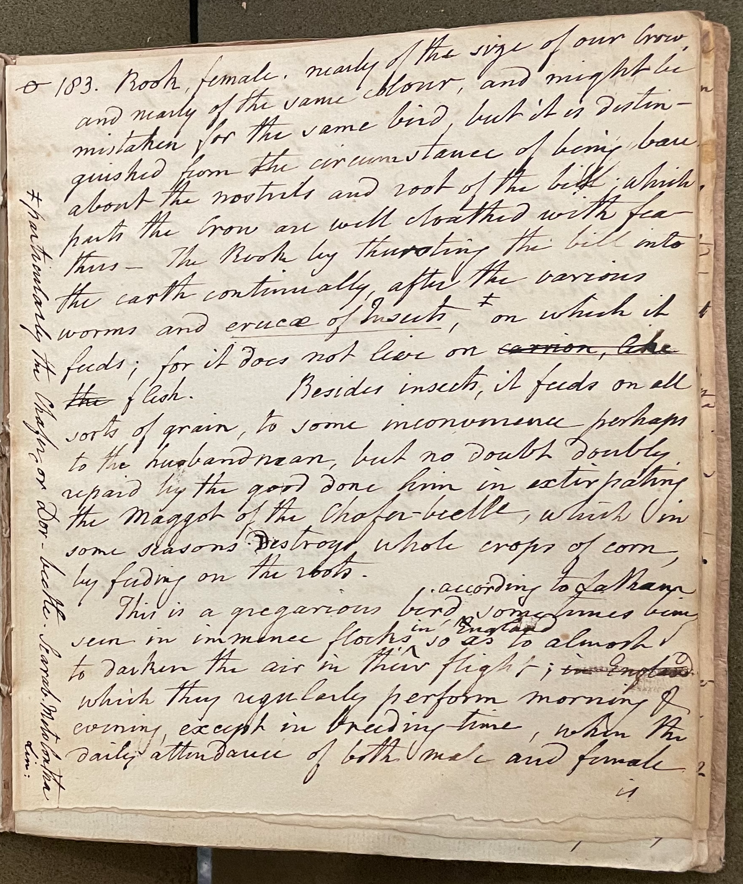 183. Rook, female. nearly of the size of our Crow,
and nearly of the same colour, and might be
mistaken for the same bird, but it is distin-
guished from the circumstance of being bare
about the nostrils and root of the bill; which
parts the Crow are well cloathed with fea-
thus — The Rook by thursting the bill into
the earth continually, after the various
worms and erucæ of Insects, ‡ on which it
feeds; for it does not live on carrion, like
the flesh. Besides insects, it feeds on all
sorts of grain, to some inconvenience perhaps
to the husbandman, but no doubt doubly
repaid by the good done him in extirpating
the Maggot of the Chafer-beetle, which in
some seasons Destroys whole crops of corn,
by feeding on the roots.
according to Latham
This is a gregarious bird, sometimes being
seen in immence flocks so as to almost
in England
to darken the air in their flight; in England
which they regularly perform morning &
evening, except in breeding time, when the
daily attendance of both male and female
is
‡ particularly the Chafer, or Dor-beetle. Scarab. Melolontha
Lin: